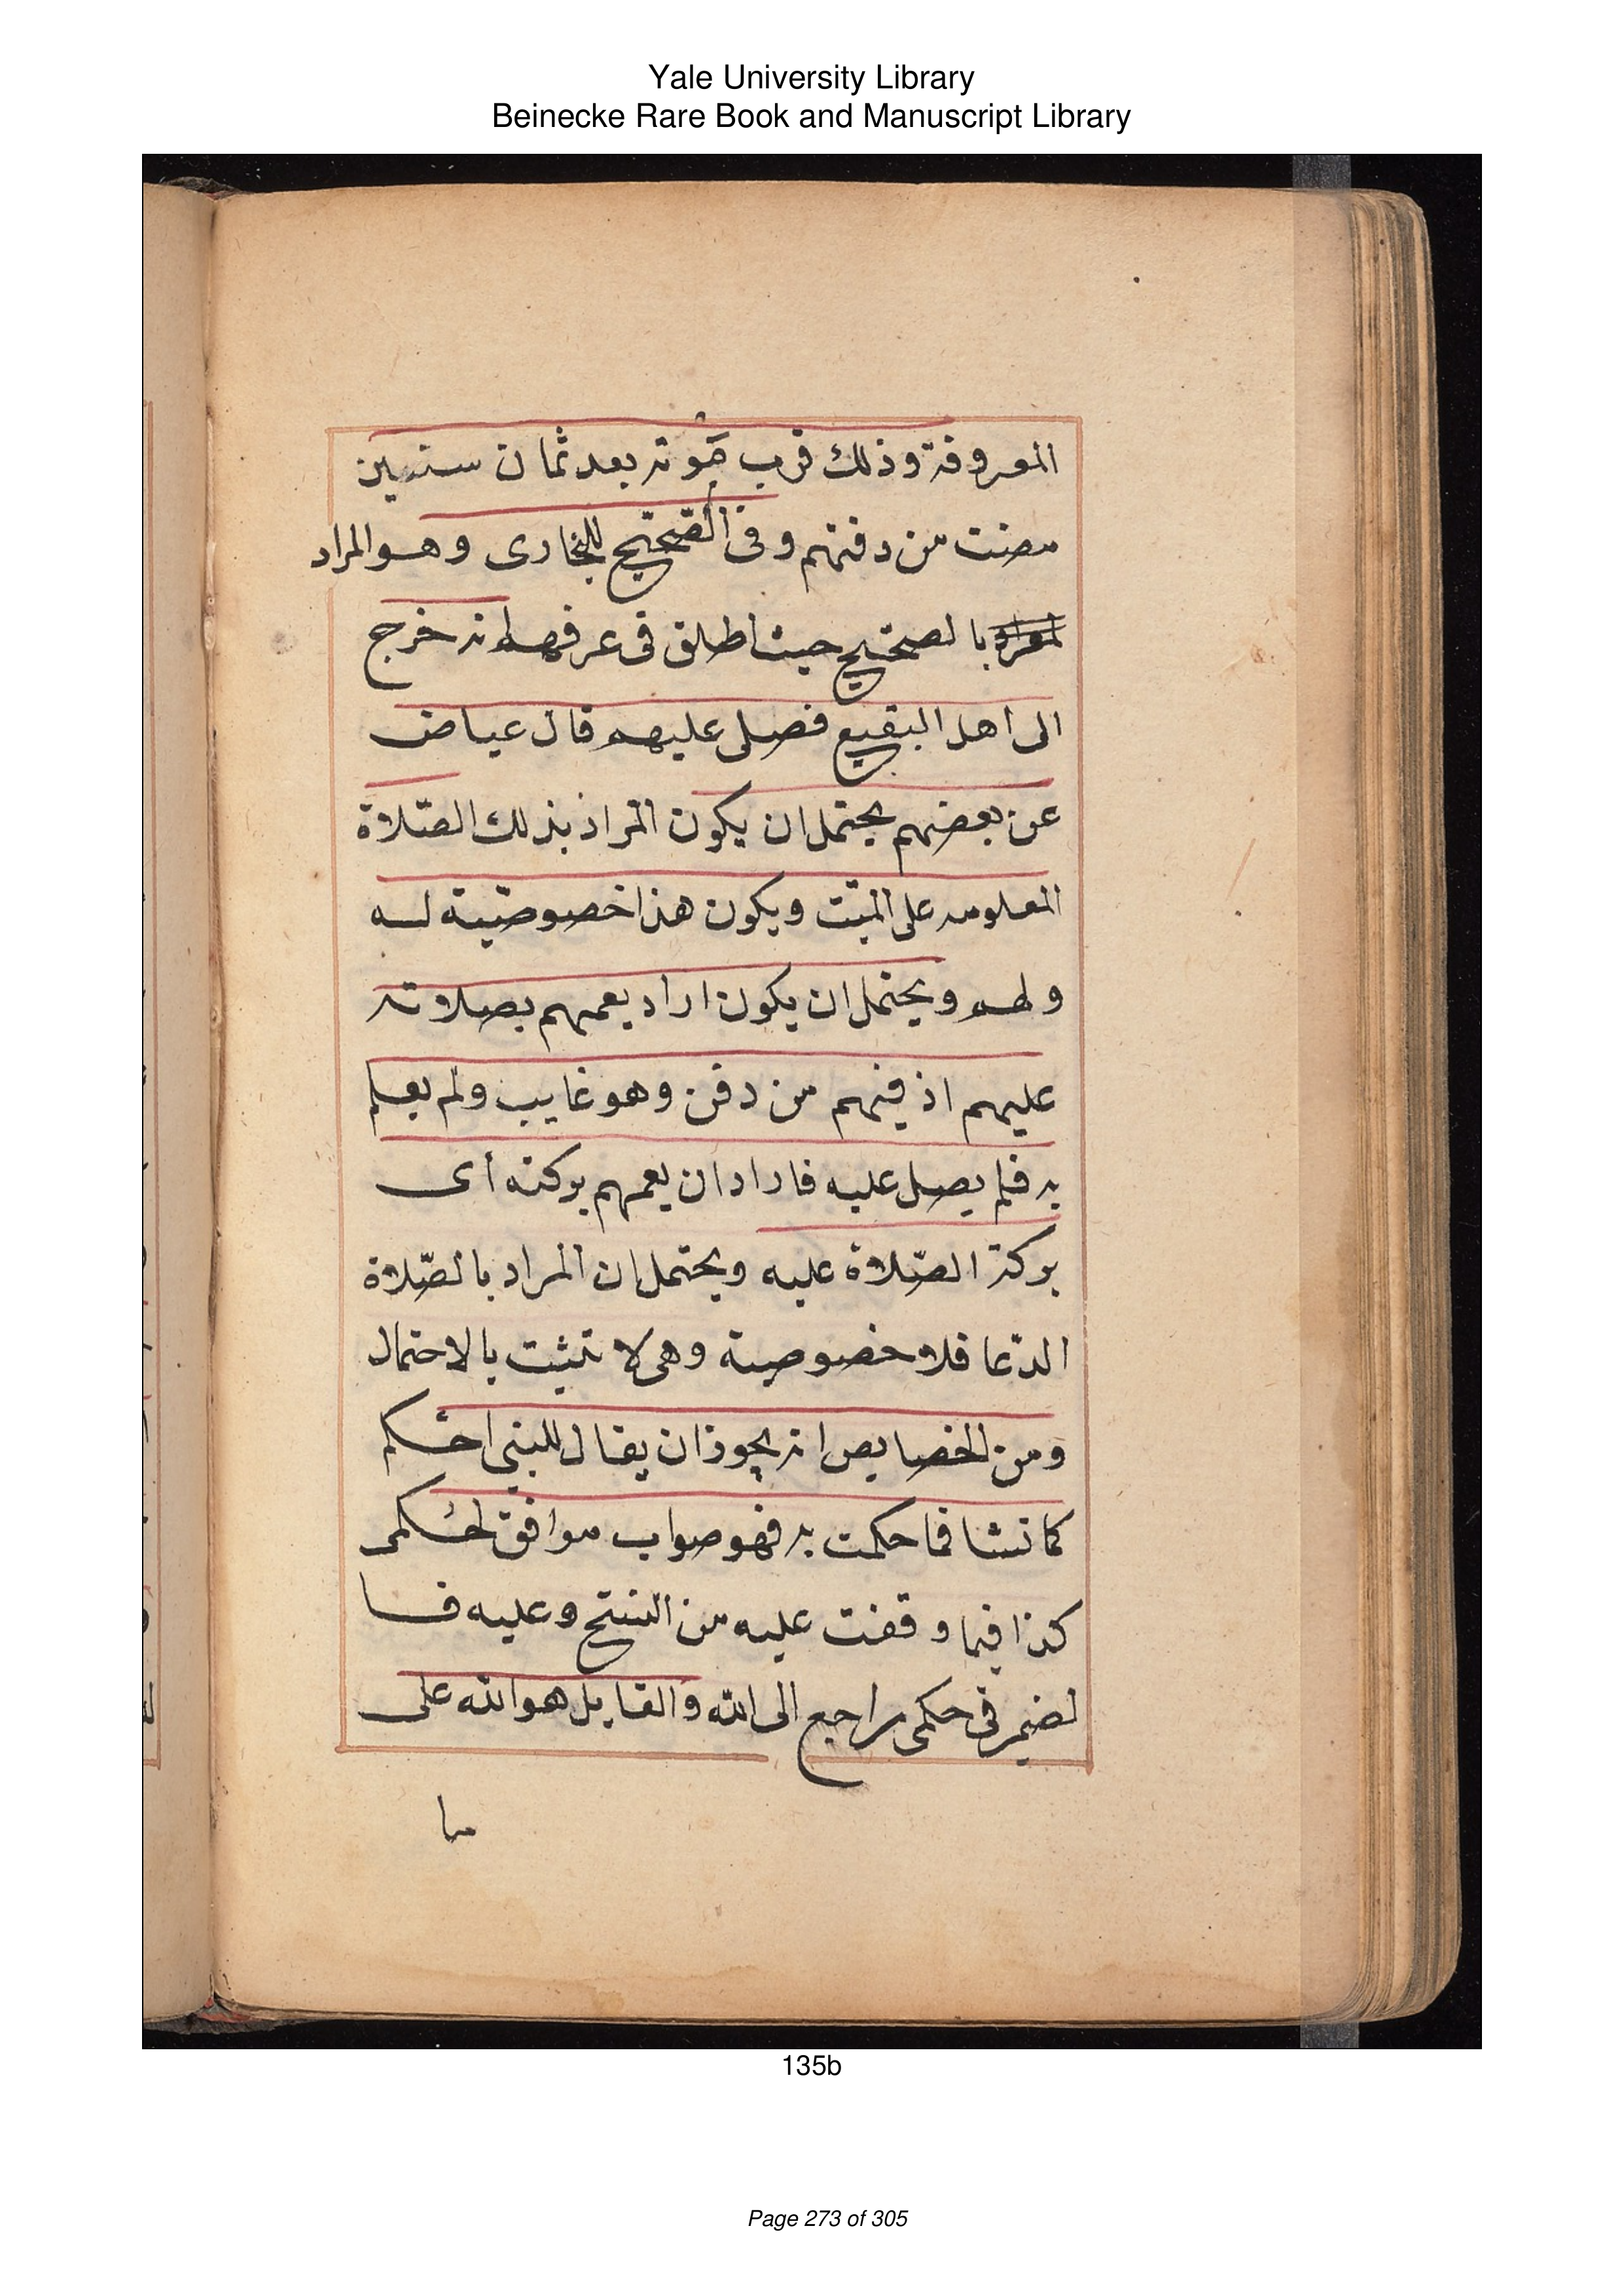 Yale University Library
Beinecke Rare Book and Manuscript Library
المعروفة وذلك قرب موته بعد ثمان سنين
مضت من دفنهم وفى الصحيح للبخارى وهو المراد
بالصحيح حيث اطلق فى عرفهم انه خرج
الى اهل البقيع فصلى عليهم قال عياض
عن بعضهم يحتمل ان يكون المراد بذلك الصّلاة
المعلومه على الميّت ويكون هذا خصوصيّة له
ولهم ويحتمل ان يكون اراد يعمهم بصلاته
عليهم اذ فيهم من دفن وهو غايب ولم يعلم
به فلم يصل عليه فاراد ان يعمهم بركته أى
بركة الصّلاة عليه ويحتمل ان المراد بالصّلاة
الدّعا فلا خصوصية وهى لا تثبت بالاحتمال
ومن الخصايص انه يجوز ان يقال للنبى احكم
كما تشا فما حكمت به فهو صواب موافق لحكمى
كذا فيما وقفت عليه من النسخ وعليه فا
لضمير فى حكمى راجع الى الله والقايل هو الله على
ما
135b
Page 273 of 305